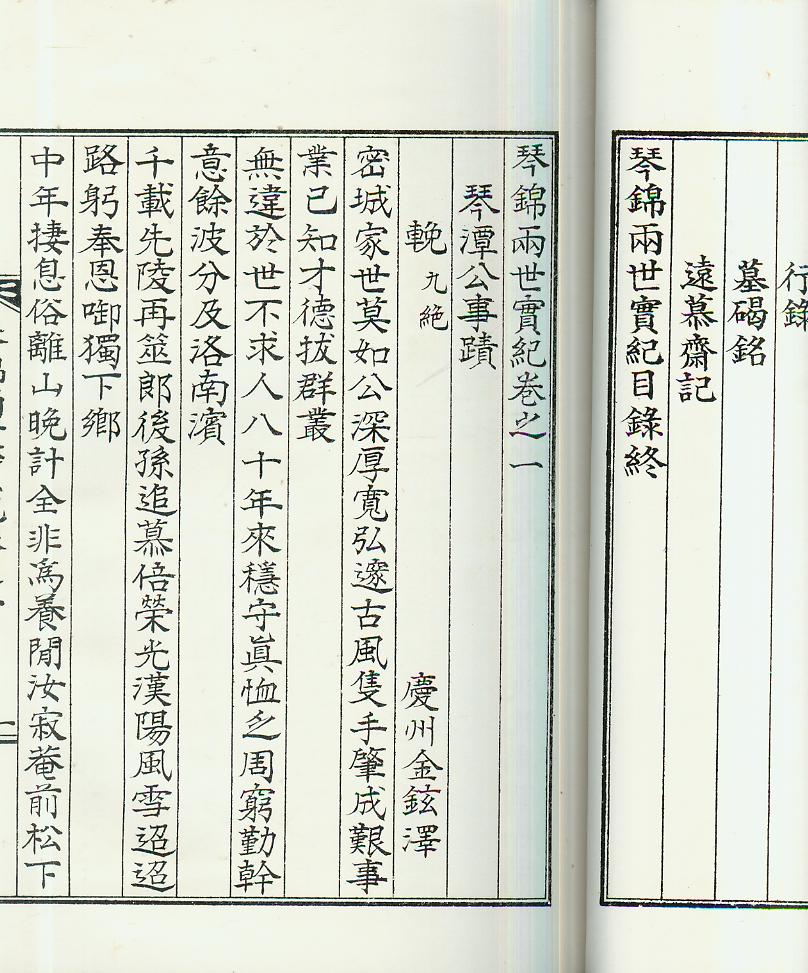 行錄
墓碣銘
遠慕齋記
琴錦兩世實紀目錄終
琴錦兩世實紀卷之一
琴潭公事蹟
輓 九絶 慶州金鉉澤
密城家世莫如公深厚寬弘邃古風隻手肇成艱事
業已知才德拔群叢
無違於世不求人八十年來穩守眞恤乏周窮勤幹
意餘波分及洛南濱
千載先陵再筮郎後孫追慕倍榮光漢陽風雪迢迢
路躬奉恩啣獨下鄉
中年捿息俗離山晚計全非爲養閒汝寂菴前松下